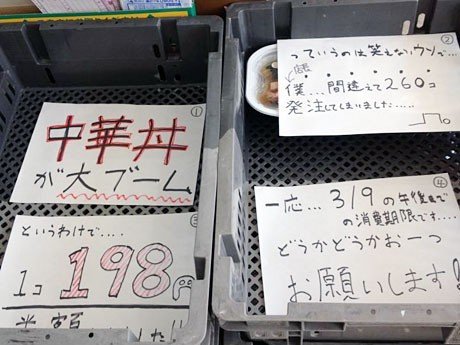 ①
中華丼
が大ブーム
②
っていうのは笑えないウソで…
(店長)
僕…間違えて260コ
発注してしまいました……
③
というわけで…
1コ 198円
④
一応… 3/9の午後まで
の消費期限です…
どうかどうかお一つ
お願いします!